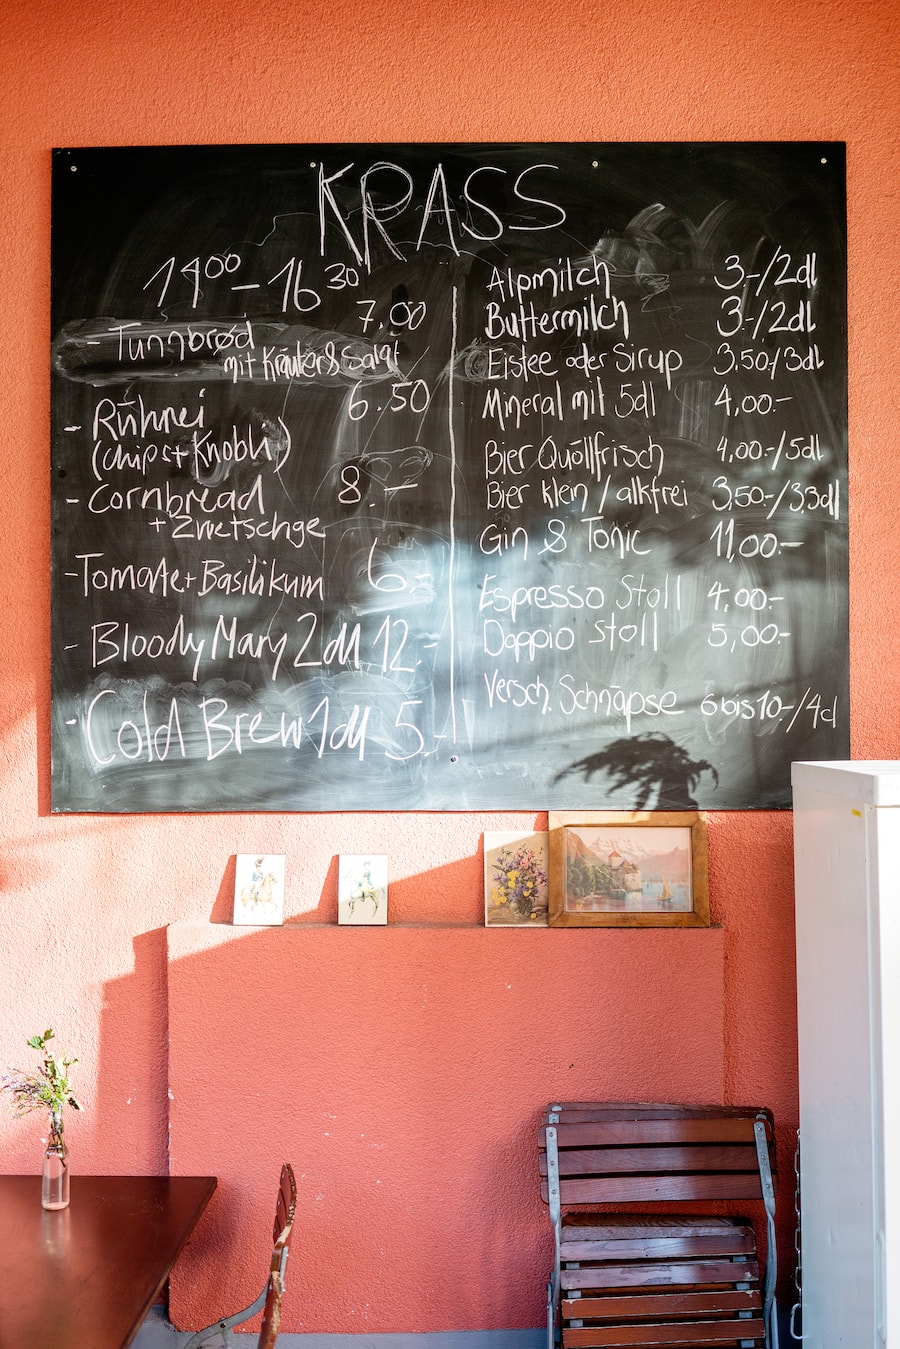 KRASS
14⁰⁰ - 16³⁰
7,00
- Tunnbrød
mit Kräuter & Salat
- Rührei 6.50
(Chips + Knobli)
- Cornbread 8.-
+ Zwetschge
- Tomate + Basilikum 6.-
- Bloody Mary 2dl 12.-
- Cold Brew 1dl 5.-
Alpmilch 3.-/2dl
Buttermilch 3.-/2dl
Eistee oder Sirup 3.50/3dl
Mineral mit 5dl 4,00.-
Bier Quöllfrisch 4,00.-/5dl
Bier klein / alkfrei 3,50.-/3,3dl
Gin & Tonic 11,00.-
Espresso Stoll 4,00.-
Doppio Stoll 5,00.-
Versch. Schnäpse 6 bis 10.-/4cl